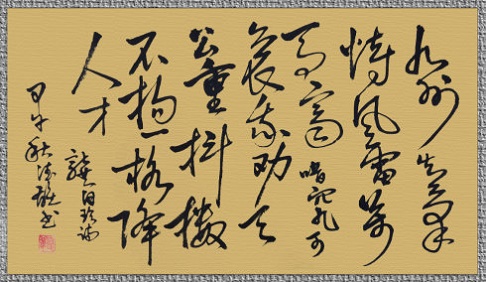 九州生氣
恃風雷萬
馬齊喑究可
哀我劝天
公重抖擞
不拘一格降
人才
龚自珍诗
甲午秋书